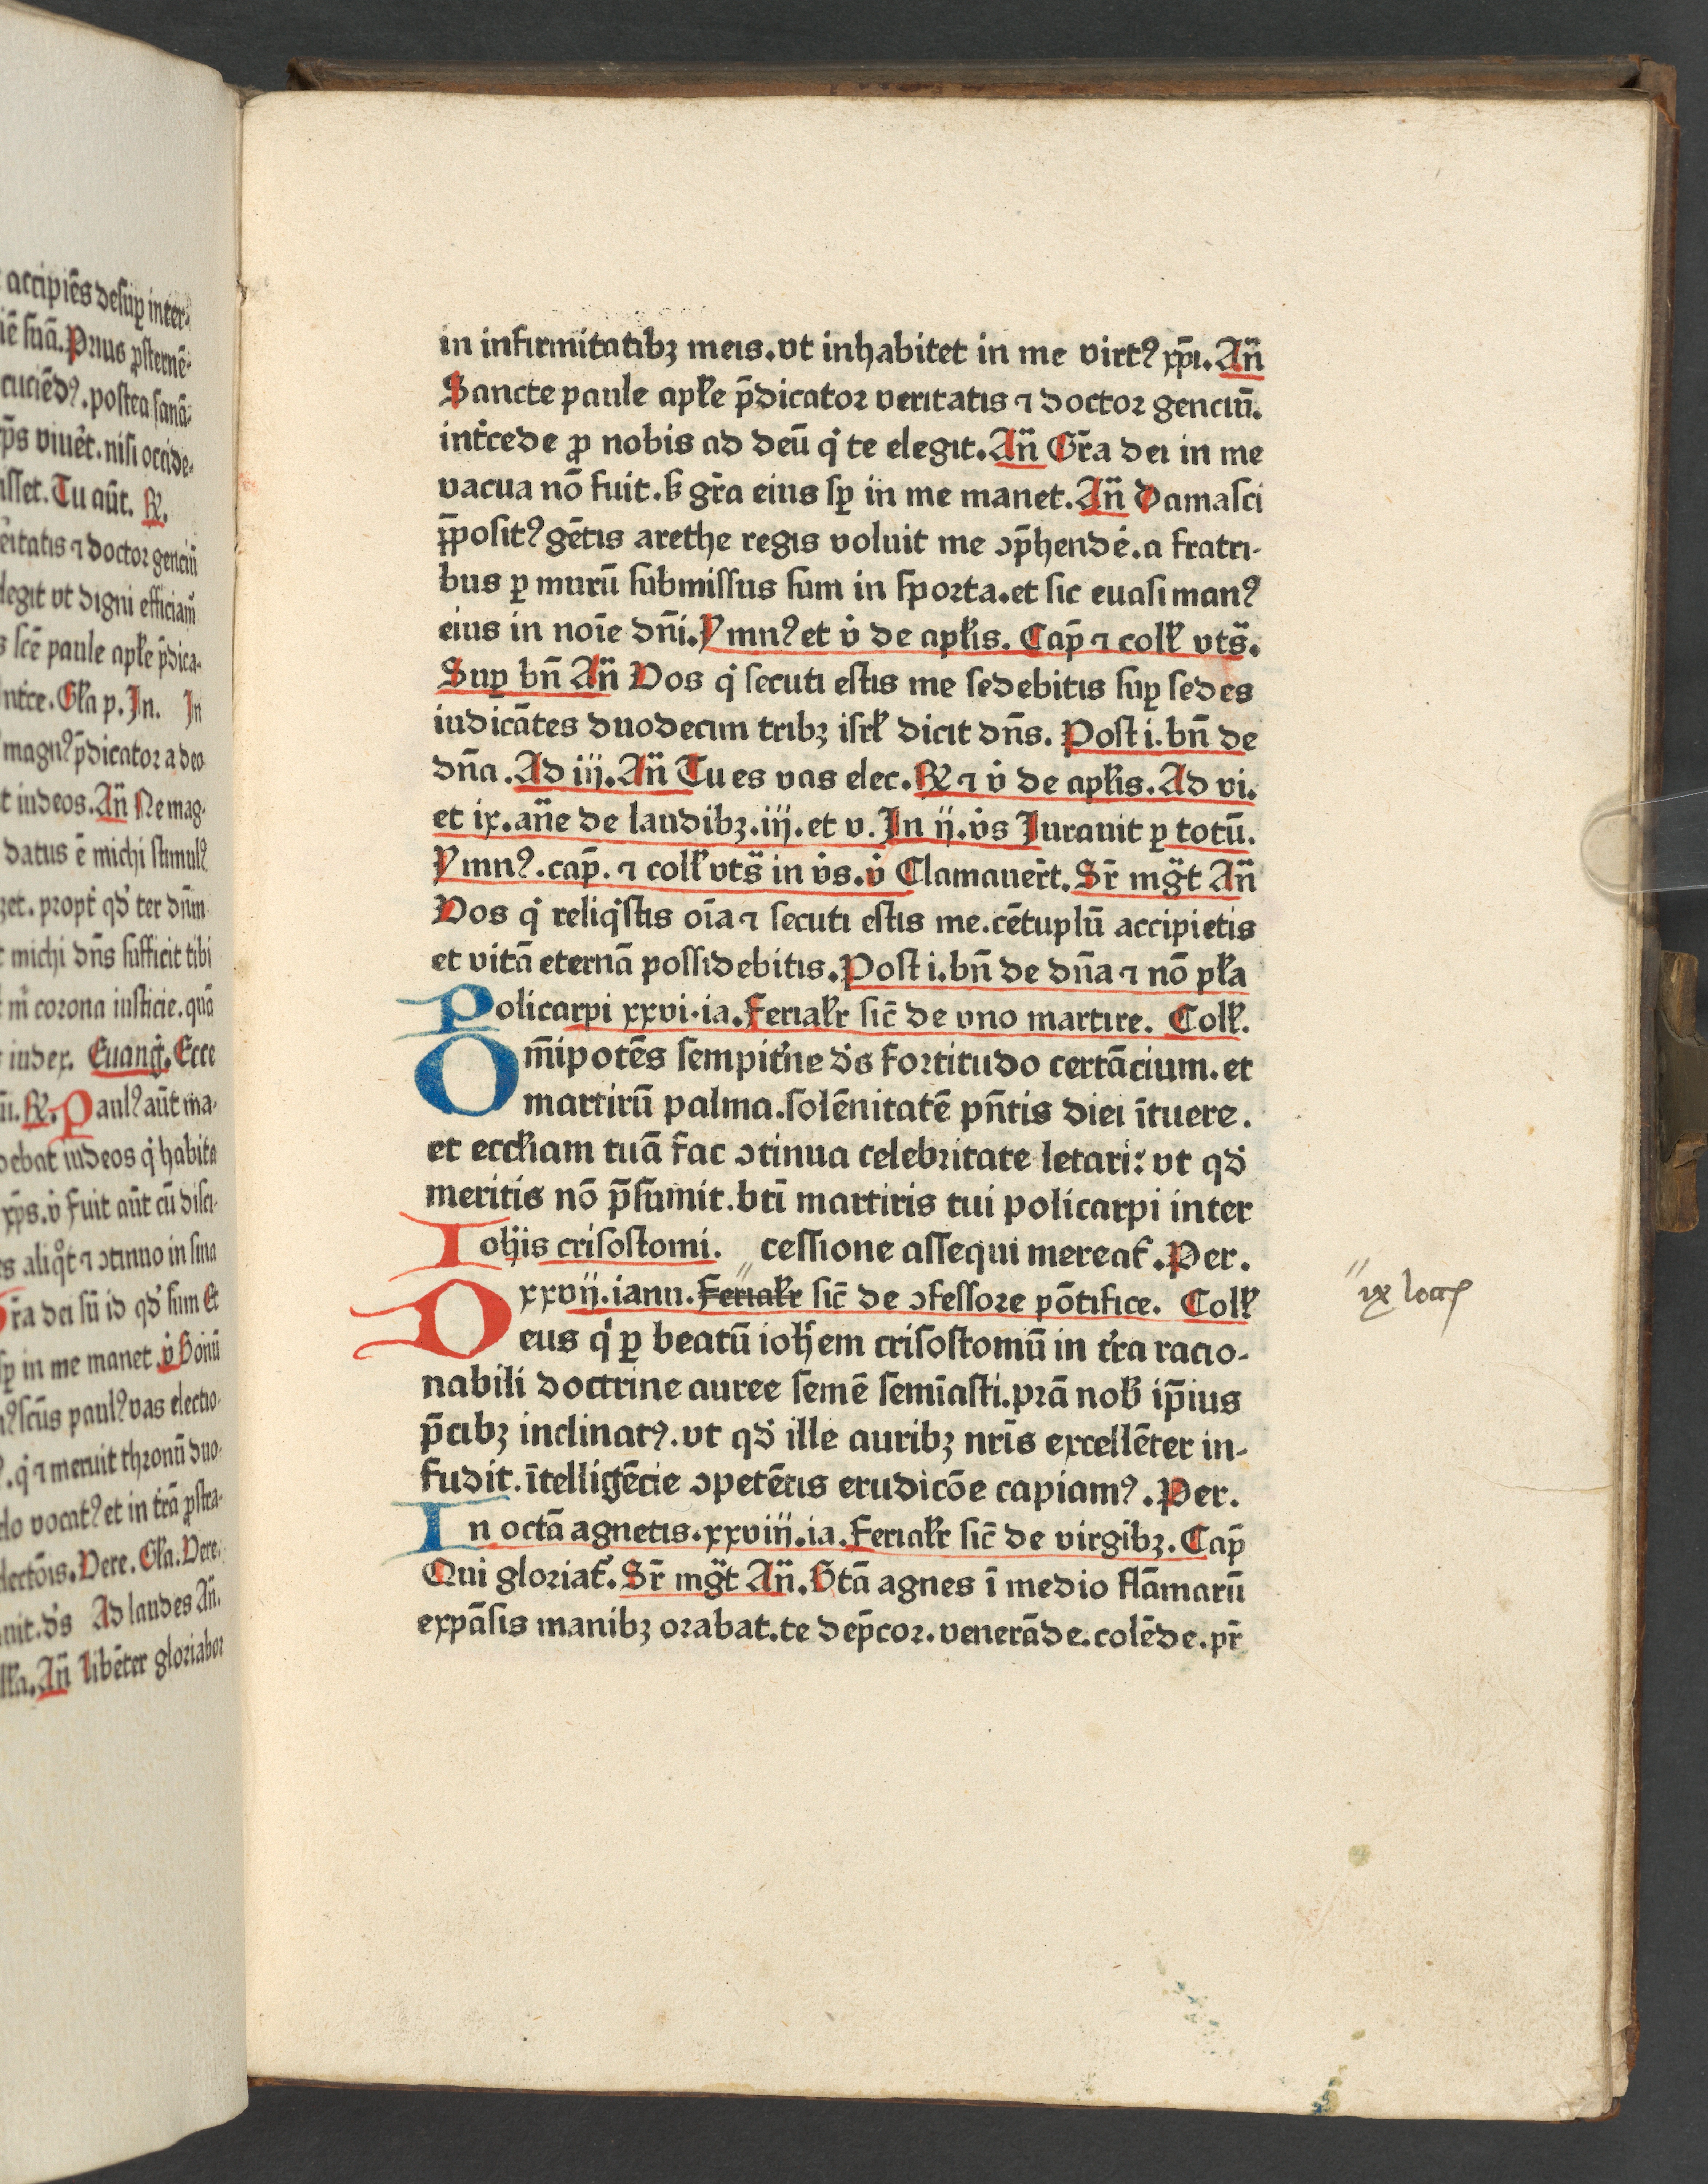 accipiẽs desuꝑ inter⸗
iẽ suã. Prius ꝓsternẽ⸗
cuciẽdꝰ. postea sanã⸗
p̃s viuet̉. nisi occide⸗
isset. Tu aut̃. ꝶ.
eritatis ⁊ doctor genciũ
legit vt digni efficiam̃
s sc̃e paule apl̃e p̃dica⸗
nt̉ce. Gl̃a p. In. In
magnꝰ p̃dicator a deo
t iudeos. Añ Ne mag⸗
datus ẽ michi stimulꝰ
ꝫet. propt̉ qd̉ ter dñm
t michi dñs sufficit tibi
t m̉ corona iusticie. quã
s iudex. Euang̉. Ecce
m̃i. ꝶ. Paulꝰ aut̃ ma⸗
debat iudeos q̉ habita
xp̃s. v̉ fuit aut̃ cũ disci⸗
es aliq̊t ⁊ ↄtinuo in sina
Gr̃a dei sũ id qd̉ sum Et
sꝑ in me manet v̉ Bonũ
nꝰ sc̃us paulꝰ vas electio⸗
ꝰ. q̉ ⁊ meruit thronũ duo⸗
elo vocatꝰ et in t̉rã ꝓstra⸗
electõis. Vere. Gl̃a. Vere.
uit. d̉s Ad laudes Añ.
l̃la. Añ Libẽter gloriabor
in infirmitatibꝫ meis. vt inhabitet in me virtꝰ xp̃i. Añ
Sancte paule apl̃e p̃dicator veritatis ⁊ doctor genciũ.
int̉cede ꝓ nobis ad deũ q̉ te elegit. Añ Gr̃a dei in me
vacua nõ fuit. ꝭ gr̃a eius sꝑ in me manet. Añ Damasci
p̃positꝰ gẽtis arethe regis voluit me ↄp̃hendẻ. a fratri⸗
bus ꝑ murũ submissus sum in sporta. et sic euasi manꝰ
eius in noĩe dñi. Ymnꝰ et v̉ de apl̃is. Cap̃ ⁊ coll̃ vts̃.
Suꝑ bñ Añ Vos q̉ secuti estis me sedebitis suꝑ sedes
iudicãtes duodecim tribꝫ isrl̃ dicit dñs. Post i. bñ de
dña. Ad iij. Añ Tu es vas elec. ꝶ ⁊ v̉ de apl̃is. Ad vi.
et ix. añe de laudibꝫ. iij. et v. In ij. v̉s Iurauit ꝑ totũ.
Ymnꝰ. cap̃. ⁊ coll̃ vts̃ in v̉s. v̉ Clamauer̃t. Sr̃ mg̃t Añ
Vos q̉ reliq̉stis oĩa ⁊ secuti estis me. cẽtuplũ accipietis
et vitã eternã possidebitis. Post i. bñ de dña ⁊ nõ pl̃a
Policarpi xxvi. ia. Ferial̃r sic̃ de vno martire. Coll̃.
Om̃ipotẽs sempit̉ne d̉s fortitudo certãcium. et
martirũ palma. solẽnitatẽ pñtis diei ĩtuere.
et eccl̃iam tuã fac ↄtinua celebritate letari: vt qd̉
meritis nõ p̃sumit. bt̃i martiris tui policarpi inter
Ioh̃is crisostomi. cessione assequi mereat̉. Per.
xxvij. ianu. Ferial̃r sic̃ de ↄfessore põtifice. Coll̃
ix lccꝭ
Deus q̉ ꝑ beatũ ioh̃em crisostomũ in t̉ra racio⸗
nabili doctrine auree semẽ semĩasti. prã nob̃ ip̃ius
p̃cibꝫ inclinatꝰ. vt qd̉ ille auribꝫ nr̃is excellẽter in⸗
fudit. ĩtelligẽcie ↄpetẽtis erudicõe capiamꝰ. Per.
In octã agnetis. xxviij. ia. Ferial̃r sic̃ de virgibꝫ. Cap̃
Qui gloriat̉. Sr̃ mg̃t Añ. Btã agnes ĩ medio flãmarũ
expãsis manibꝫ orabat. te dep̃cor. venerãde. colẽde. pr̃